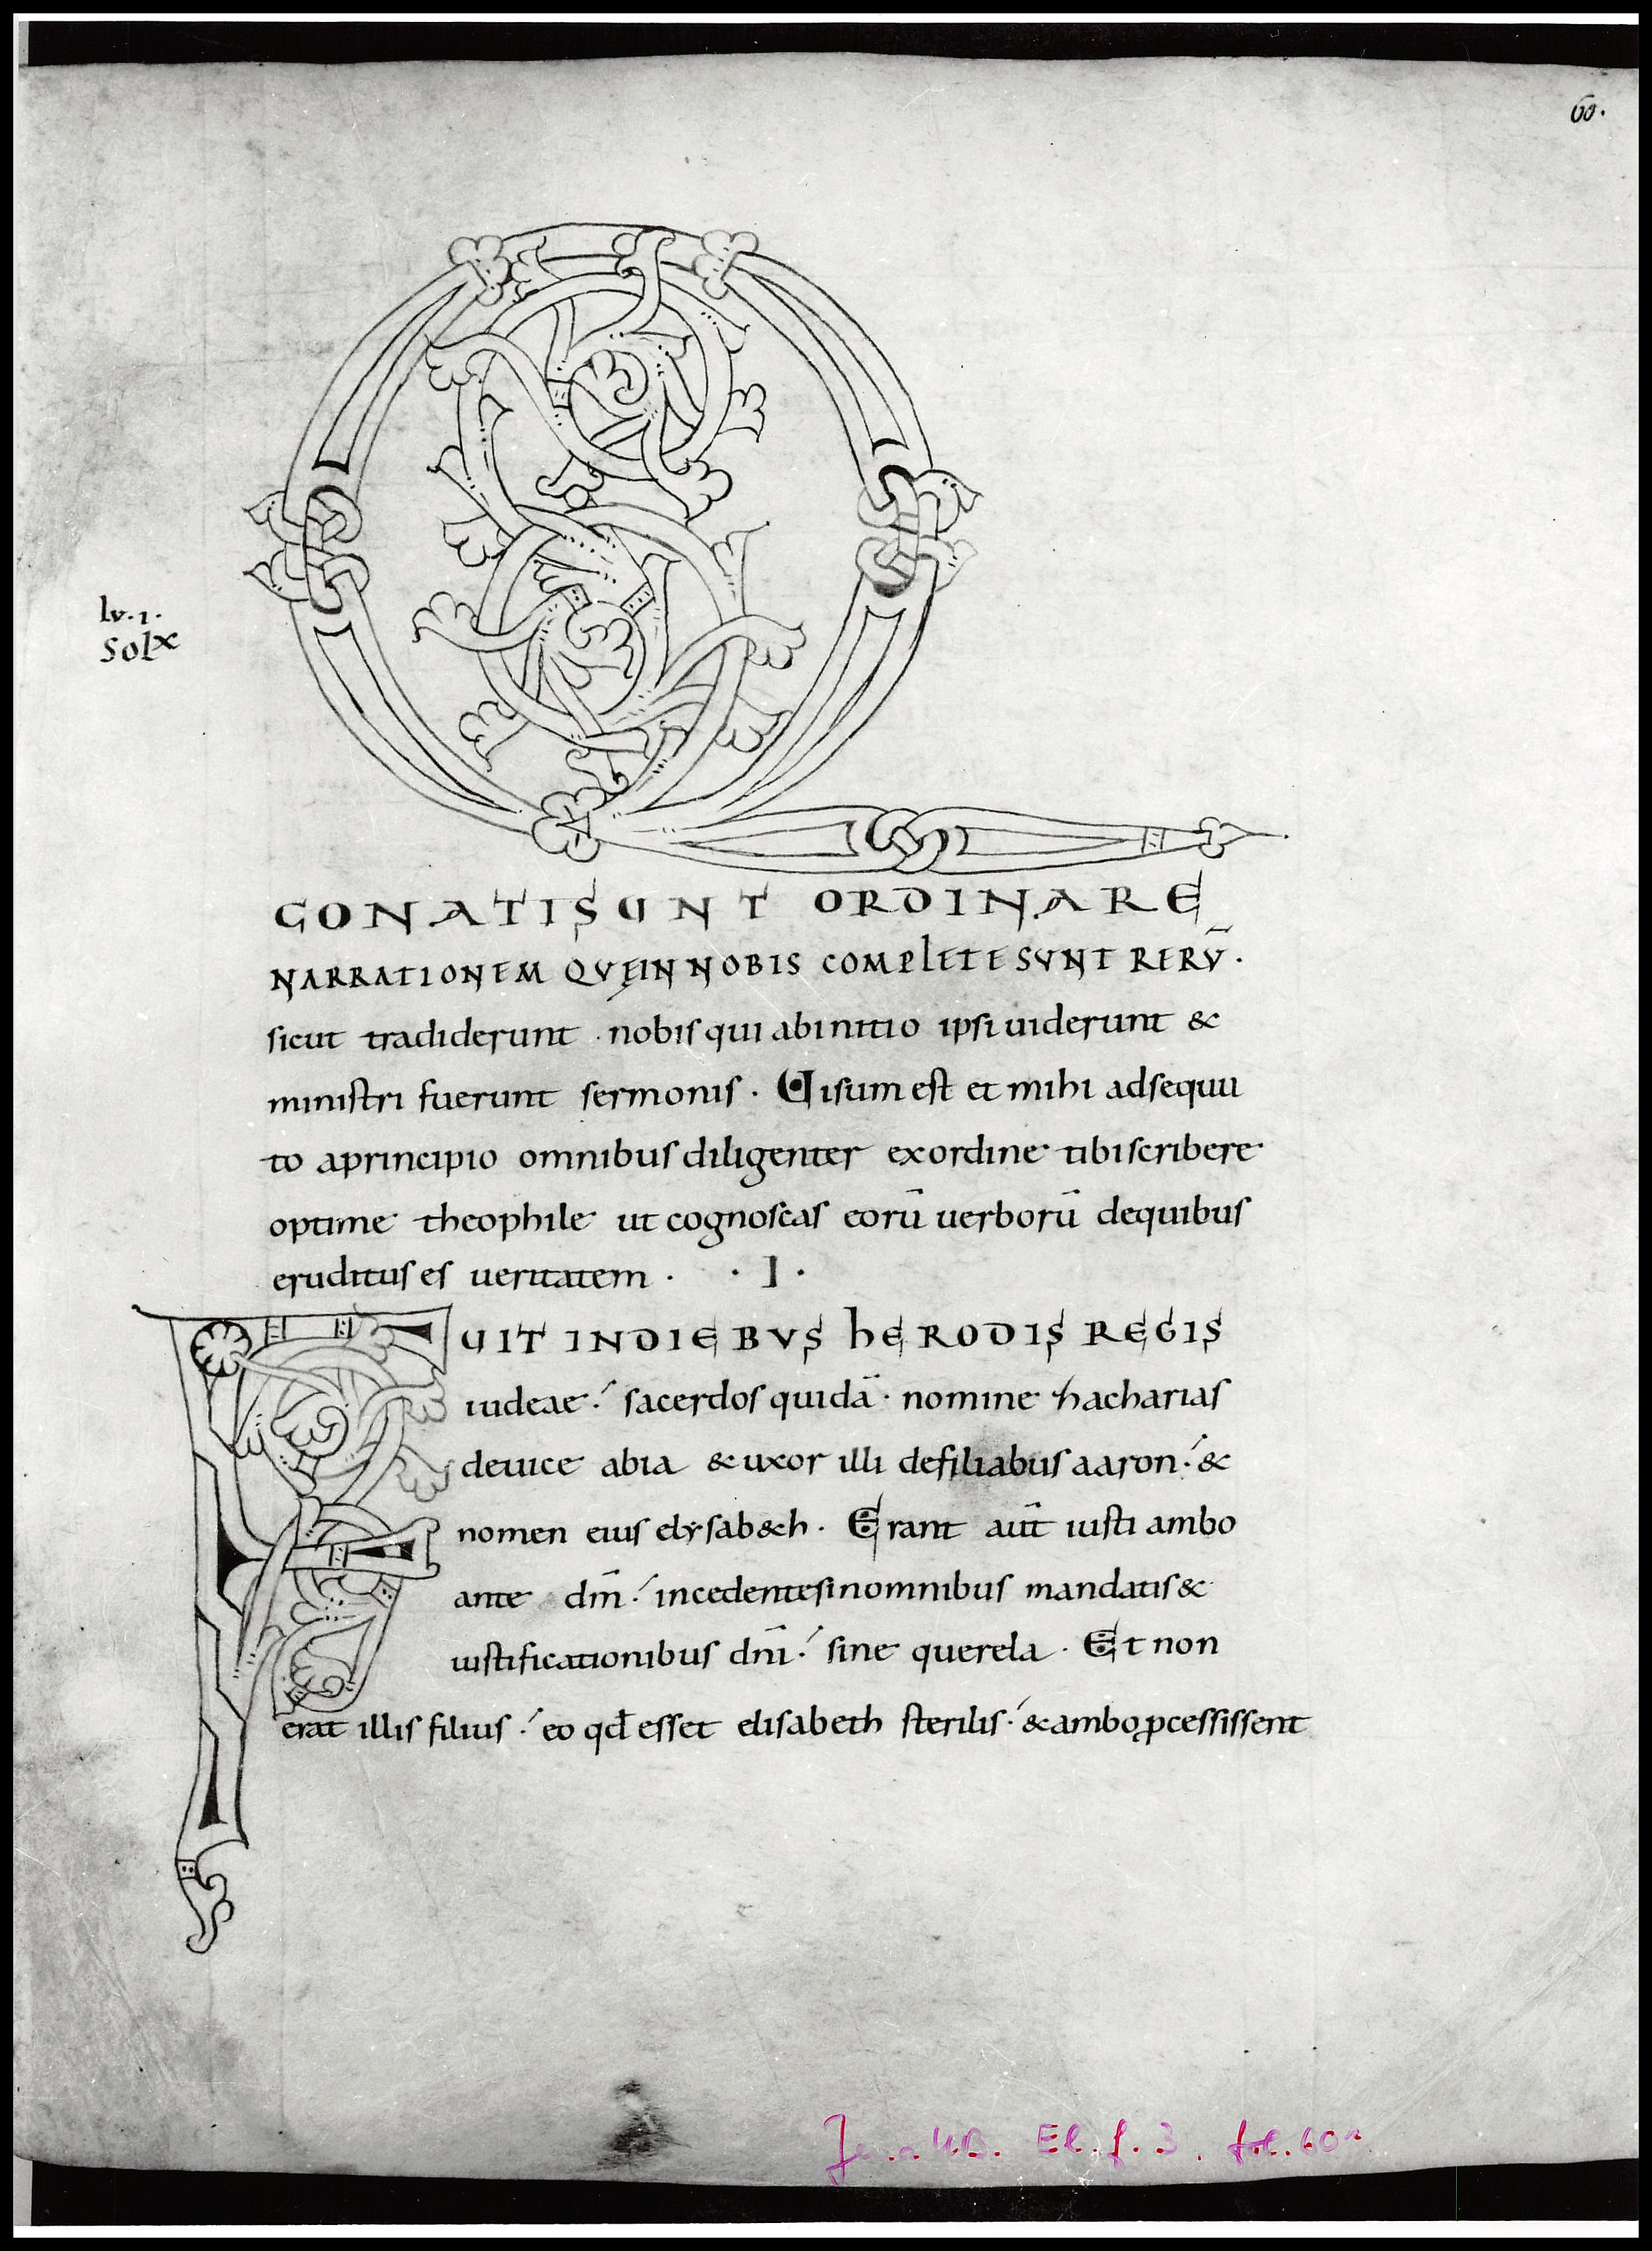 60.
Q
lv. 1.
Sol X
CONATI SUNT ORDINARE
NARRATIONEM QUĘ IN NOBIS COMPLETE SUNT RERŪ.
sicut tradiderunt. nobis qui abinitio ipsi uiderunt &
ministri fuerunt sermonis. Uisum est et mihi adsequu
to aprincipio omnibus diligenter exordine tibi scribere
optime theophile ut cognoscas eorū uerborū dequibus
eruditus es ueritatem. . I .
F
UIT IN DIEBUS hERODIS REGIS
iudeae. sacerdos quidā. nomine hacharias
deuice abia & uxor illi defiliabus aaron. &
nomen eius elysab&h. Erant aūt iusti ambo
ante dm̄. incedentes inomnibus mandatis &
iustificationibus dn̄i. sine querela. Et non
erat illis filius. eo qđ esset elisabeth sterilis. & ambo ꝓcessissent
Jena UB. El. f. 3. fol. 60r